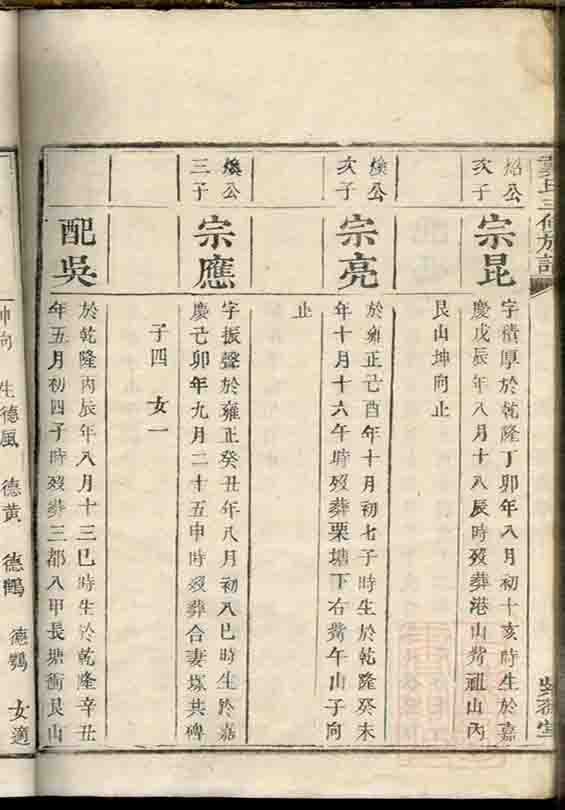 氏三修族譜
公
次子
宗昆
字積厚於乾隆丁卯年八月初十亥時生於嘉
慶戊辰年八月十八辰時歿葬港山背祖山內
艮山坤向止
煥公
次子
宗亮
於雍正己酉年十月初七子時生於乾隆癸未
年十月十六午時歿葬栗塘下右背午山子向
止
煥公
三子
宗應
字振聲於雍正癸丑年八月初八巳時生於嘉
慶己卯年九月二十五申時歿葬合妻塚共碑
子四　女一
配吳
於乾隆丙辰年八月十三巳時生於乾隆辛丑
年五月初四子時歿葬三都八甲長塘衝艮山
坤向　生德風　德黃　德鶴　德鸚　女適
堂